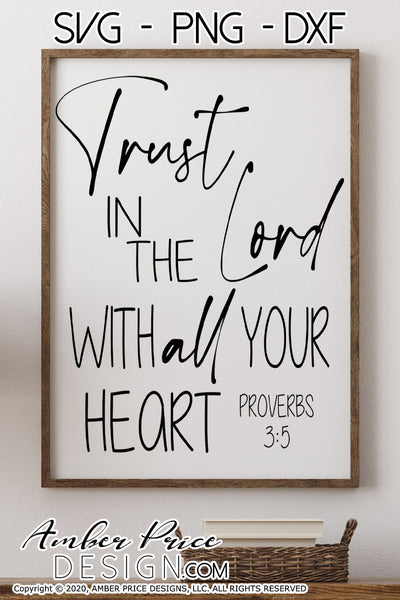 SVG - PNG - DXF
Trust
IN
THE Lord
WITH all YOUR
HEART PROVERBS
3:5
Amber Price
DESIGN.COM
Copyright © 2020, AMBER PRICE DESIGNS, LLC. ALL RIGHTS RESERVED